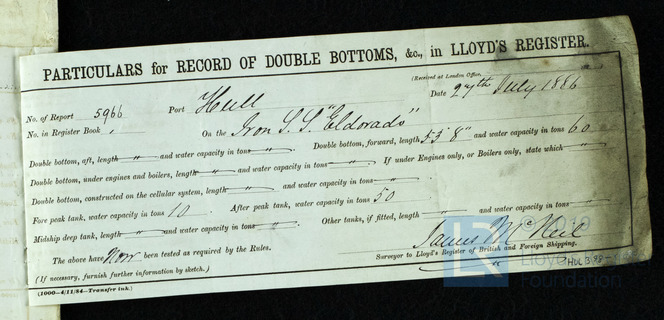 PARTICULARS for RECORD OF DOUBLE BOTTOMS, &c., in LLOYD'S REGISTER.
(Received at London Office,
No. of Report 5966 Port Hull Date 27th July 1886
No. in Register Book, On the Iron S.S "Eldorado"
Double bottom, aft, length " and water capacity in tons " Double bottom, forward, length 55' 8" and water capacity in tons 60
Double bottom, under engines and boilers, length " and water capacity in tons " If under Engines only, or Boilers only, state which "
Double bottom, constructed on the cellular system, length " and water capacity in tons "
Fore peak tank, water capacity in tons 10. After peak tank, water capacity in tons 50
Midship deep tank, length " and water capacity in tons " Other tanks, if fitted, length " and water capacity in tons "
The above have Now been tested as required by the Rules.
James McNeil
Surveyor to Lloyd's Register of British and Foreign Shipping.
(If necessary, furnish further information by sketch.)
(1000–4/11/84–Transfer ink.)
LR
Foundation